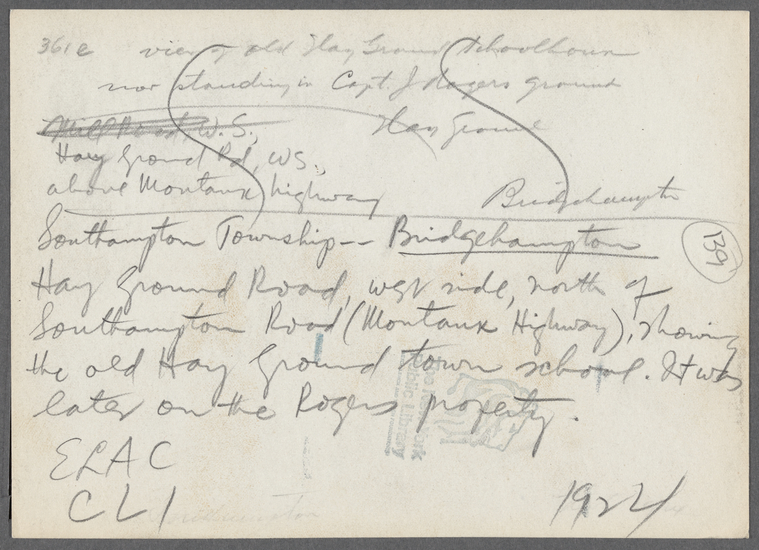 361e view of old Hay Ground Schoolhouse
now standing in Capt. J Rogers ground
Mill Road, W.S., Hay Ground
Hay Ground Rd, WS.,
above Montauk highway Bridgehampton
Southampton Township-- Bridgehampton
139
Hay Ground Road, west side, north of
Southampton Road (Montauk Highway), showing
the old Hay Ground town school. It was
later on the Rogers property.
The New York
Public Library
ELAC
CLI 1922